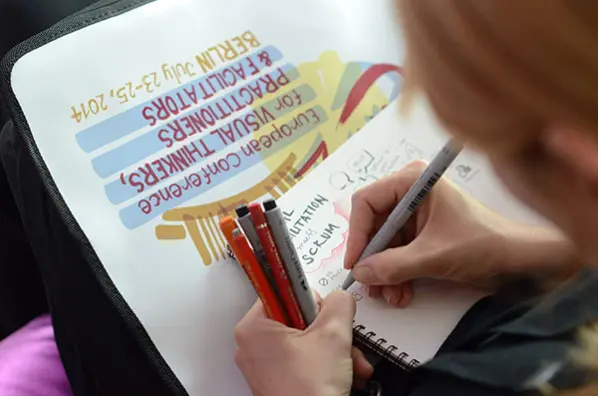 European Conference
for VISUAL THINKERS,
PRACTITIONERS
& FACILITATORS
BERLIN July 23-25, 2014
MUTATION
SCRUM